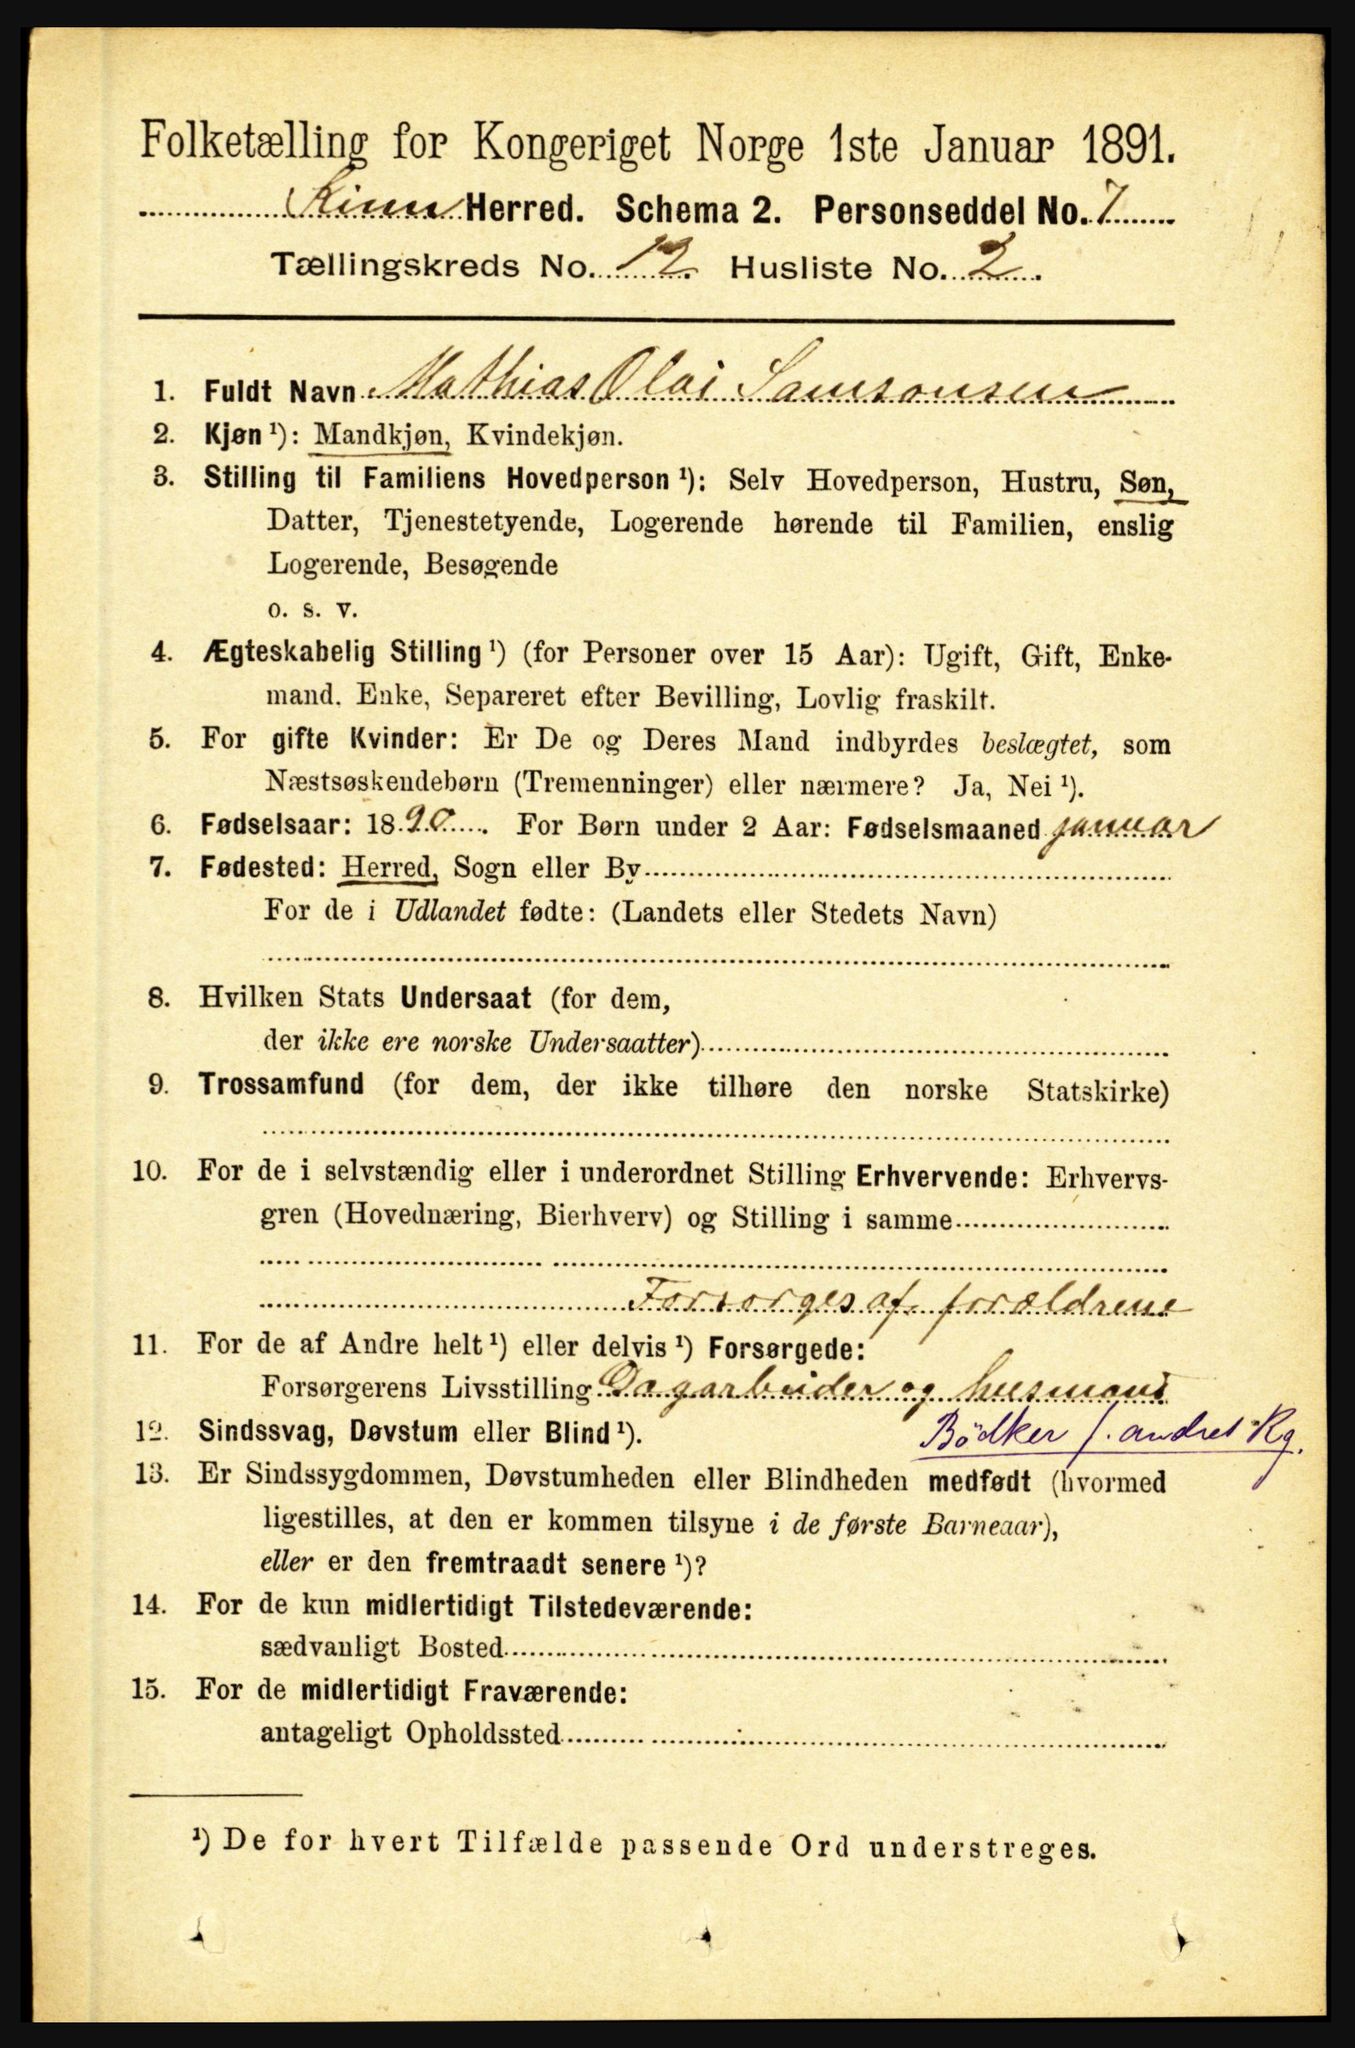 Folketælling for Kongeriget Norge 1ste Januar 1891.
Kinn Herred. Schema 2. Personseddel No. 7
Tællingskreds No. 12. Husliste No. 2.
1. Fuldt Navn Mathias Olai Samsonsen
2. Kjøn ¹): Mandkjøn, Kvindekjøn.
3. Stilling til Familiens Hovedperson ¹): Selv Hovedperson, Hustru, Søn,
Datter, Tjenestetyende, Logerende hørende til Familien, enslig
Logerende, Besøgende
o. s. v.
4. Ægteskabelig Stilling ¹) (for Personer over 15 Aar): Ugift, Gift, Enke-
mand. Enke, Separeret efter Bevilling, Lovlig fraskilt.
5. For gifte Kvinder: Er De og Deres Mand indbyrdes beslægtet, som
Næstsøskendebørn (Tremenninger) eller nærmere? Ja, Nei ¹).
6. Fødselsaar: 1890. For Børn under 2 Aar: Fødselsmaaned januar
7. Fødested: Herred, Sogn eller By
For de i Udlandet fødte: (Landets eller Stedets Navn)
8. Hvilken Stats Undersaat (for dem,
der ikke ere norske Undersaatter)
9. Trossamfund (for dem, der ikke tilhøre den norske Statskirke)
10. For de i selvstændig eller i underordnet Stilling Erhvervende: Erhvervs-
gren (Hovednæring, Bierhverv) og Stilling i samme
Forsorges af forældrene
11. For de af Andre helt ¹) eller delvis ¹) Forsørgede:
Forsørgerens Livsstilling Dagarbeider og husmand
12. Sindssvag, Døvstum eller Blind ¹).
Bödker f. andres Rg.
13. Er Sindssygdommen, Døvstumheden eller Blindheden medfødt (hvormed
ligestilles, at den er kommen tilsyne i de første Barneaar),
eller er den fremtraadt senere ¹)?
14. For de kun midlertidigt Tilstedeværende:
sædvanligt Bosted
15. For de midlertidigt Fraværende:
antageligt Opholdssted
¹) De for hvert Tilfælde passende Ord understreges.